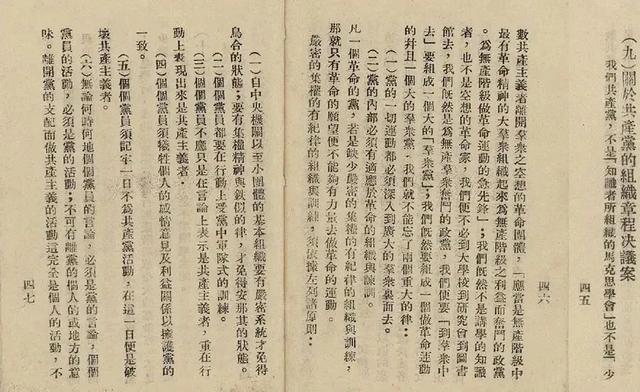 (九)關於共產黨的組織章程決議案
我們共產黨,不是『知識者所組織的馬克思學會』也不是『少
四五
數共產主義者離開羣衆之空想的革命團體,『應當是無產階級中
最有革命精神的大羣衆組織起來爲無產階級之利益而奮鬥的政黨
。爲無產階級做革命運動的急先鋒』;我們既然不是講學的知識
者,也不是空想的革命家,我們便不必到大學校到研究會到圖書
館去,我們既然是爲無產羣衆奮鬥的政黨,我們便要『到羣衆中
去』要組成一個大的『羣衆黨』;我們既然要組成一個做革命運動
的幷且一個大的羣衆黨,我們就不能忘了兩個重大的律:
(一)黨的一切運動都必須深入到廣大的羣衆裏面去。
(二)黨的內部必須有適應於革命的組織與訓練。
凡一個革命的黨,若是缺少嚴密的集權的有紀律的組織與訓練,
那就只有革命的願望便不能夠有力量去做革命的運動。
嚴密的集權的有紀律的組織與訓練,須依據左列諸原則:
四六
(一)自中央機關以至小團體的基本組織要有嚴密系統才免得
烏合的狀態;要有集權精神與鐵似的律,才免得安那其的狀態。
(二)個個黨員都要在行動上受黨中軍隊式的訓練。
(三)個個黨員不應只是在言論上表示是共產主義者,重在行
動上表現出來是共產主義者。
(四)個個黨員須犧牲個人的感情意見及利益關係以擁護黨的
一致。
(五)個個黨員須記牢,一日不爲共產黨活動,在這一日便是破
壞共產主義者。
(六)無論何時何地個個黨員的言論,必須是黨的言論,個個
黨員的活動,必須是黨的活動;不可有離黨的個人的或地方的意
味。離開黨的支配而做共產主義的活動這完全是個人的活動,不
四七